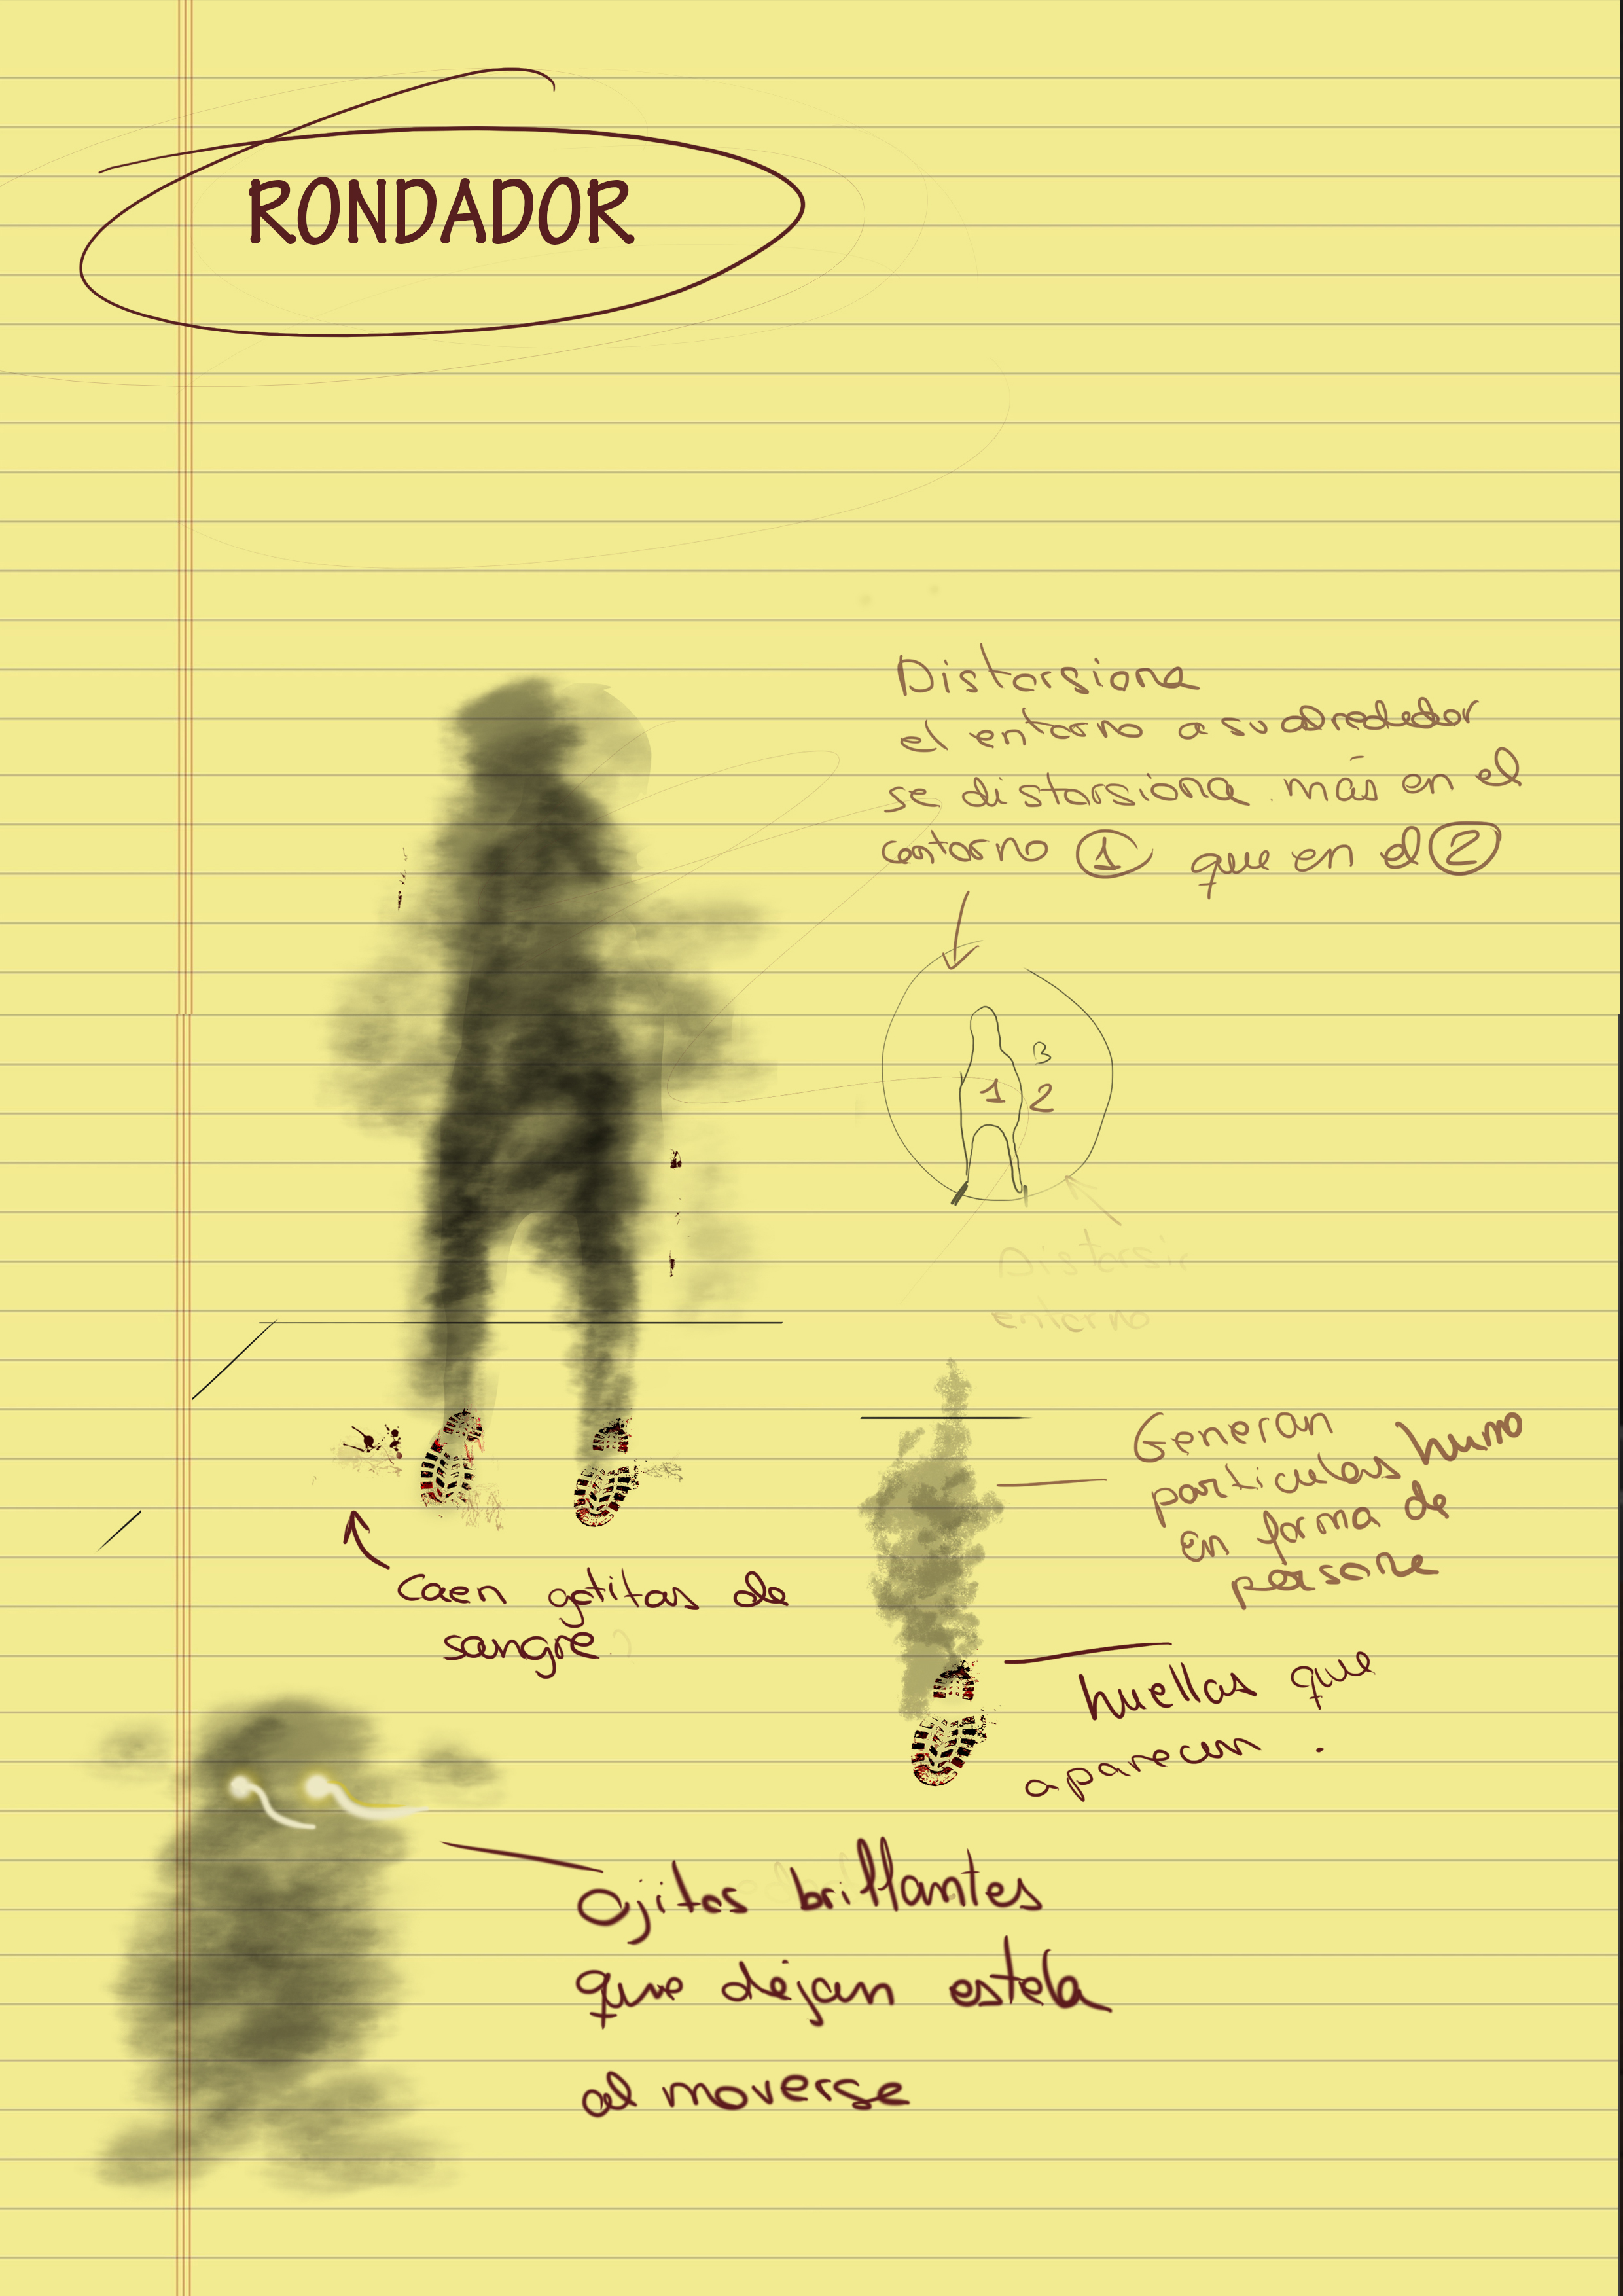 RONDADOR
Distorsiona
el entorno a su alrededor
se distorsiona más en el
contorno 1 que en el 2
3
1 2
Distorsi
entorno
Generan
particulas humo
en forma de
persona
Caen gotitas de
sangre
huellas que
aparecen.
Ojitos brillantes
que dejan estela
al moverse